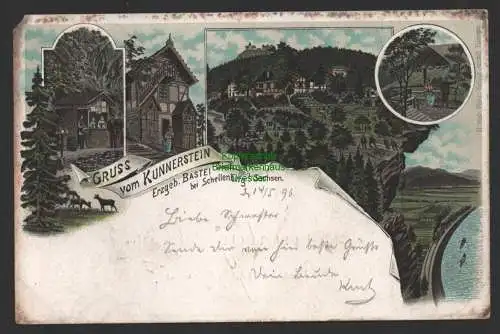 GRUSS
vom KUNNERSTEIN
Erzgeb. BASTEI
bei Schellenberg Sachsen.
14/5 96
Liebe Schwester!
Sende dir von hier beste Grüße
Dein Bruder
Kurt